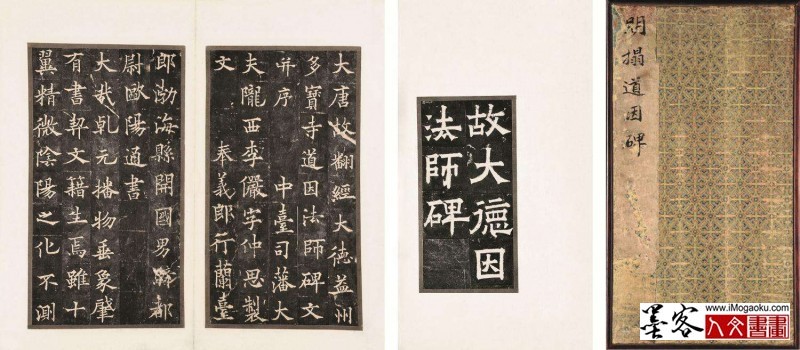 明搨道因碑
故大德因
法師碑
大唐故翻經大德益州
多寶寺道因法師碑文
并序 中臺司藩大
夫隴西李儼字仲思製
文 奉義郎行蘭臺
郎渤海縣開國男騎都
尉歐陽通書
大哉乾元播物垂象肇
有書契文籍生焉雖十
翼精微陰陽之化不測
墨客
www.iMogaoku.com
人文書畫